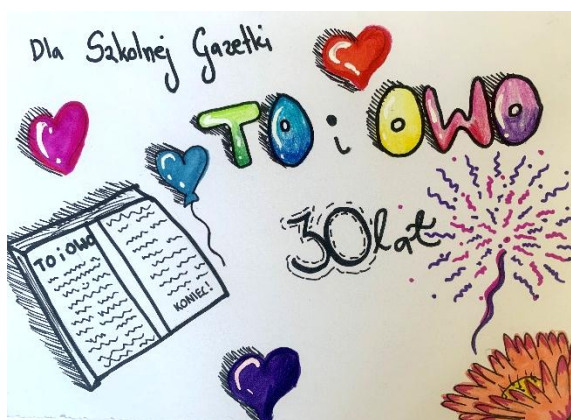 Dla Szkolnej Gazetki
TO i OWO
30 lat
TO i OWO
KONIEC!